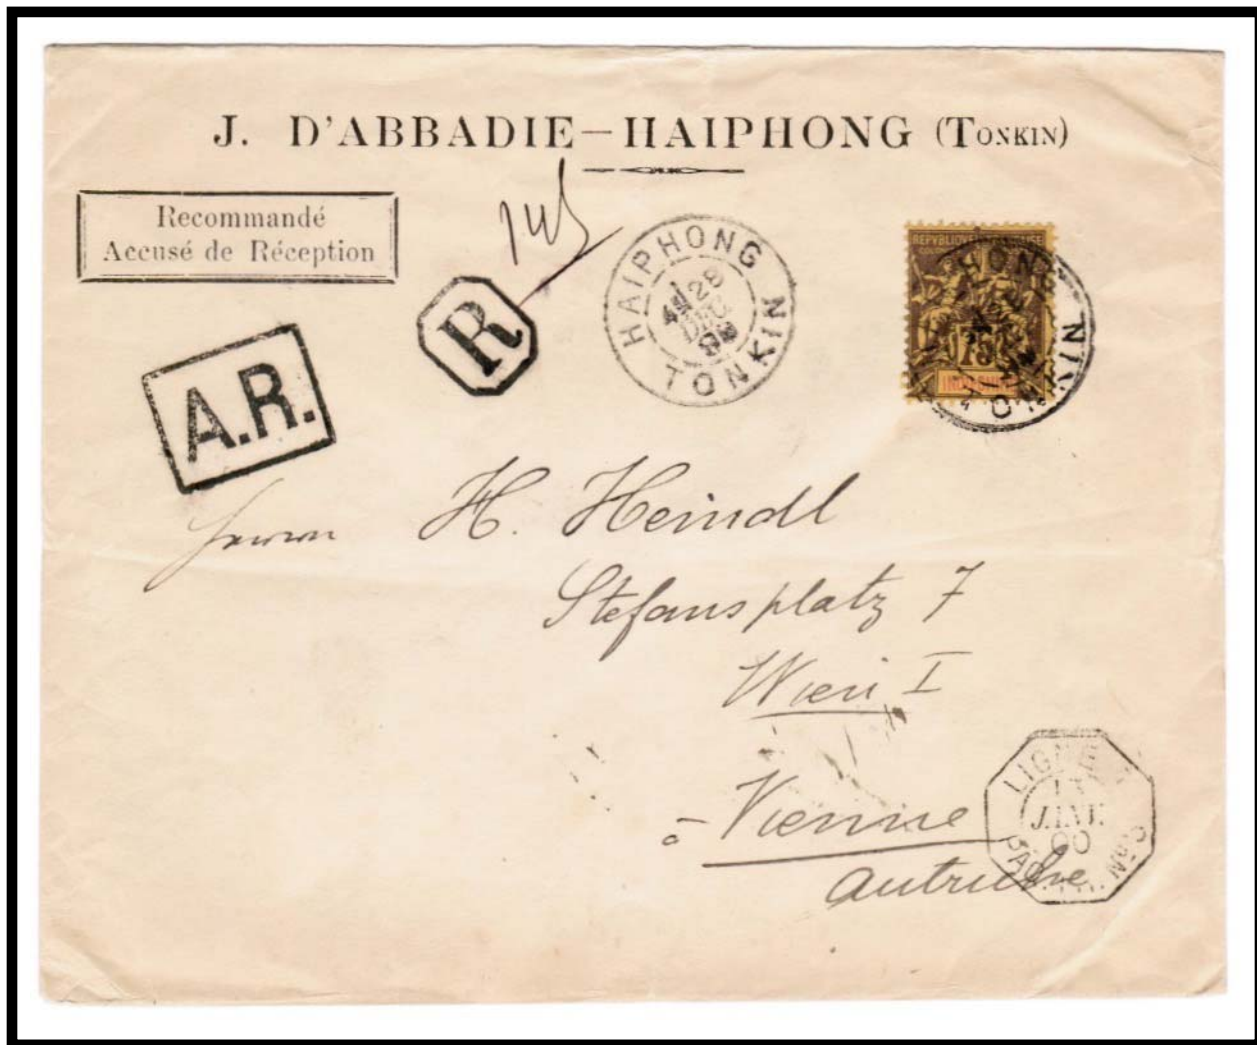 J. D'ABBADIE—HAIPHONG (TONKIN)
Recommandé
Accusé de Réception
R
HAIPHONG
28
DEC
TONKIN
REPUBLIQUE FRANCAISE
75
INDO-CHINE
A.R.
Herrn H. Heindl
Stefansplatz 7
Wien I
à Vienne
Autriche
LIGNE
JANV.
00
PAQ. FR. Nº